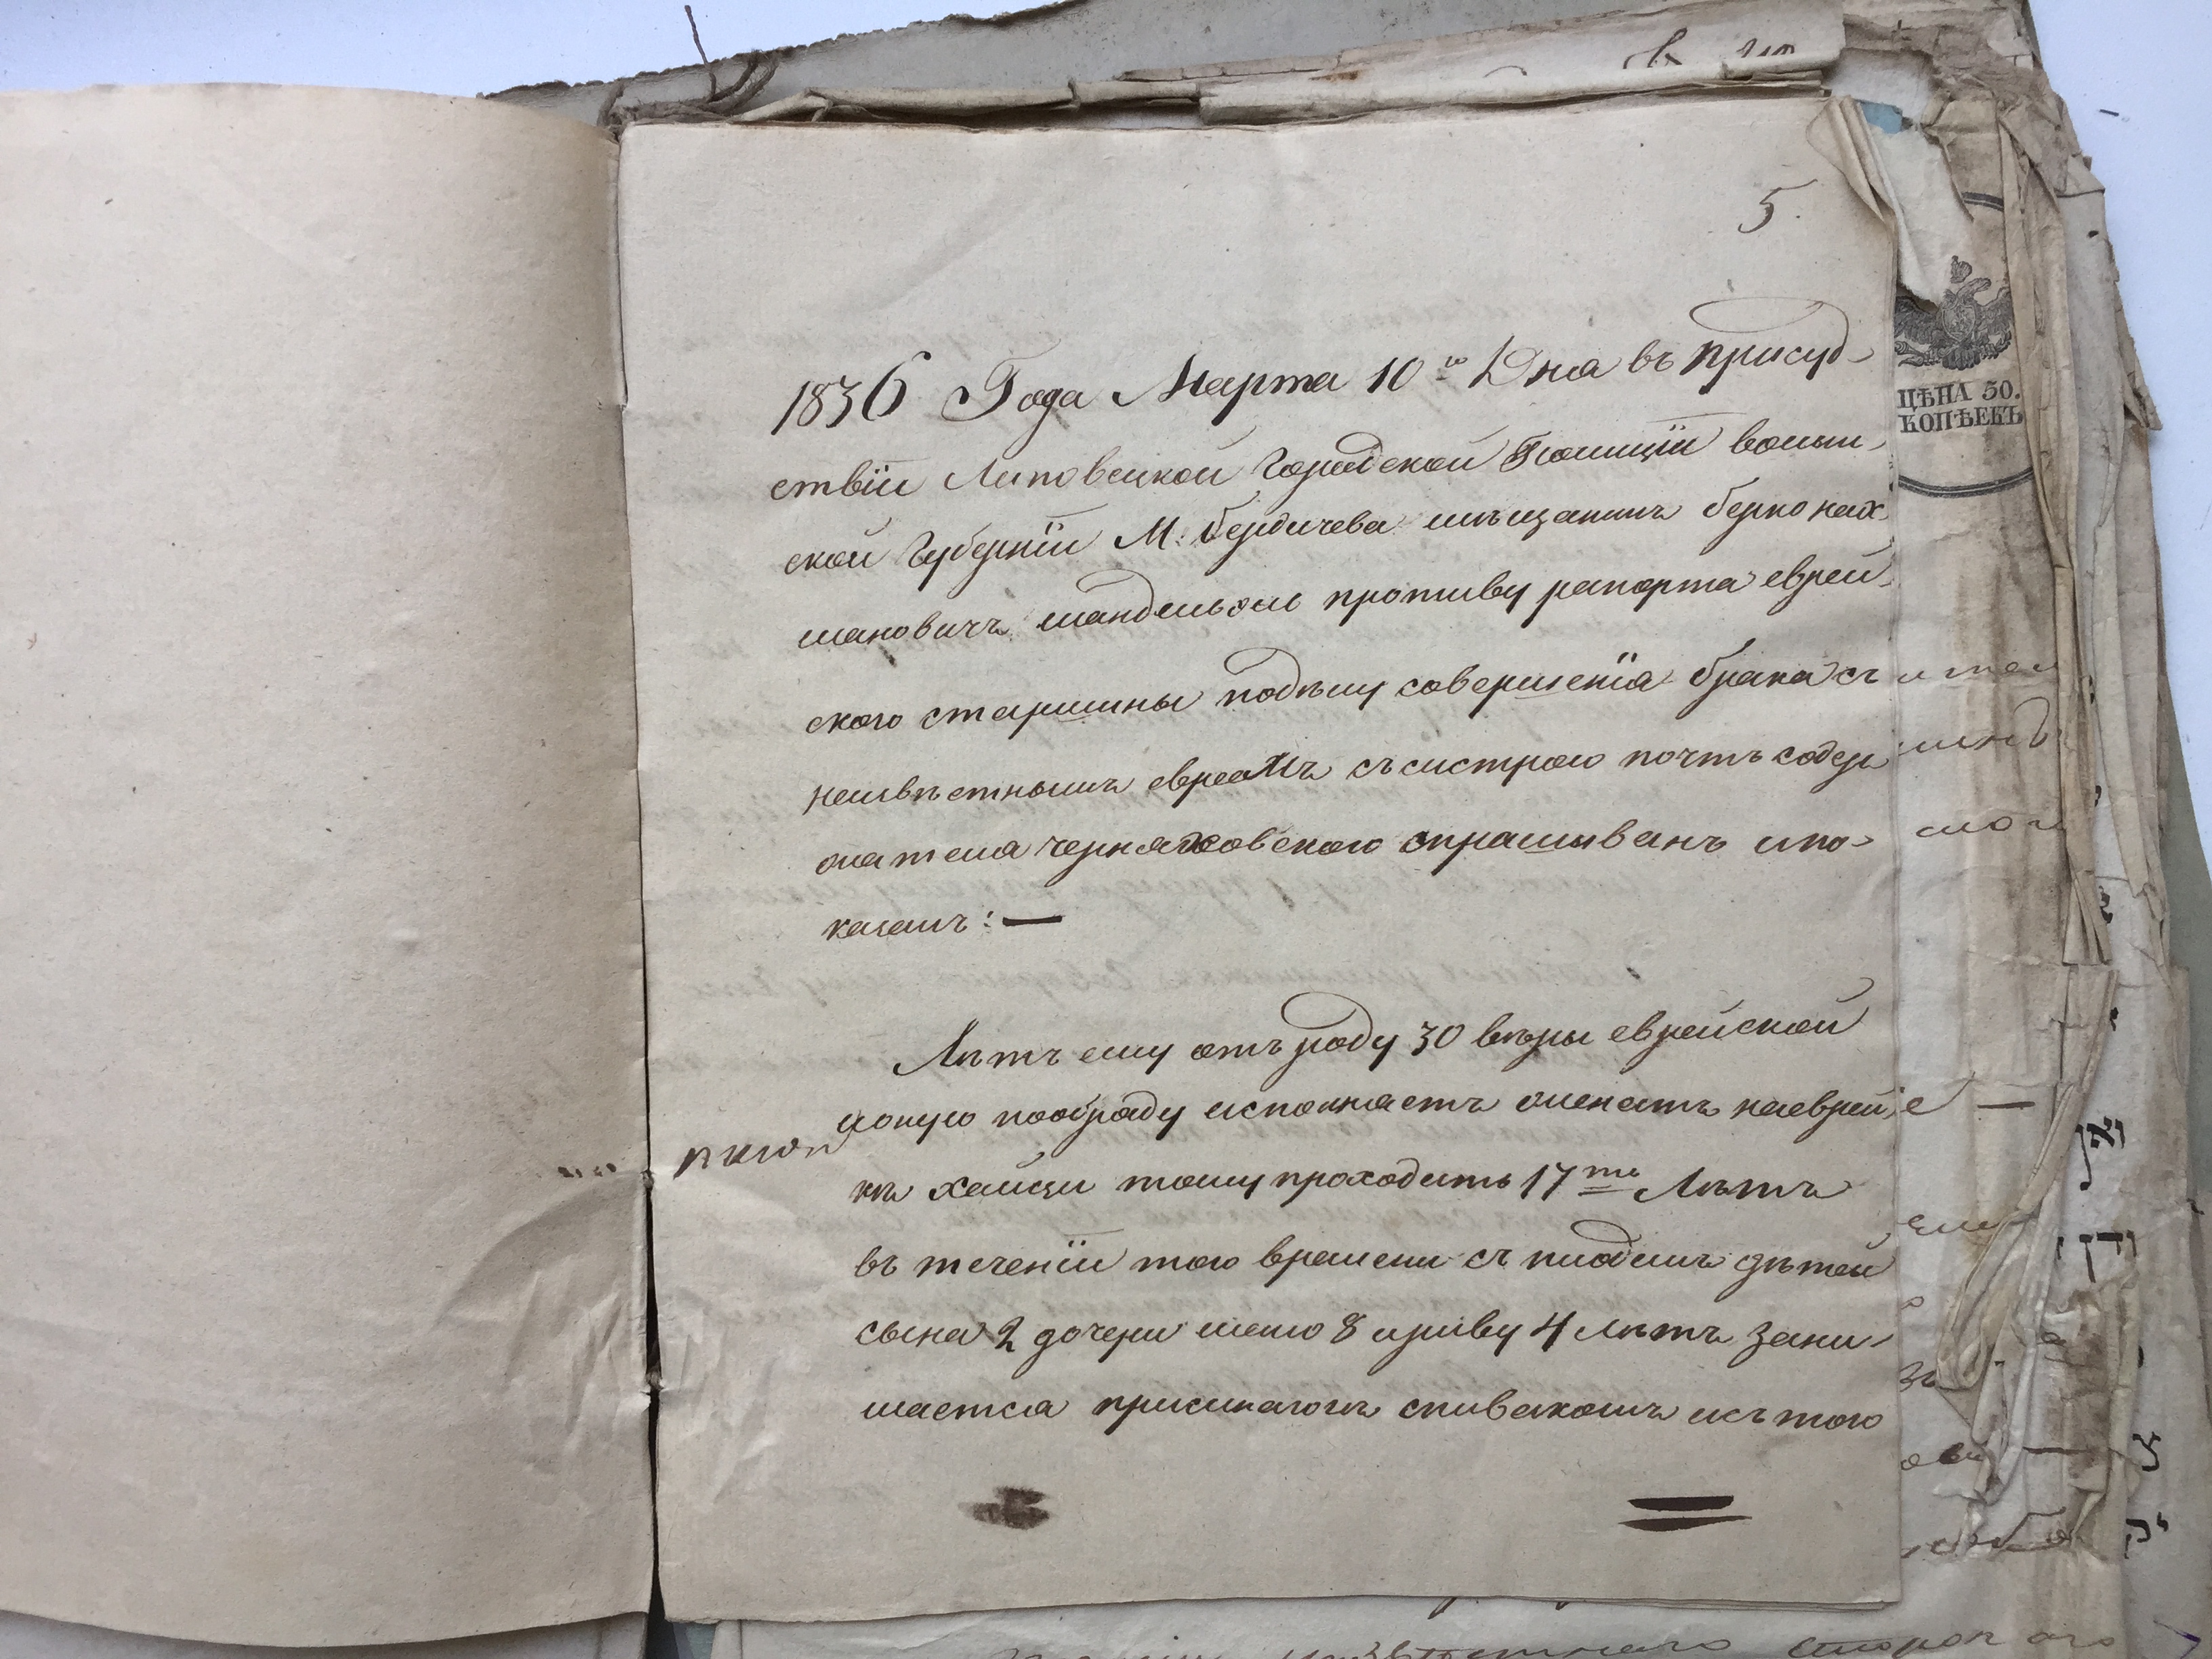 5.
1836 Года Марта 10го Дня въ присуд-
ствіи Липовецкой Городской Полиціи волын-
ской Губерніи М: бердичева мѣщанинъ берко нах
мановичъ мандельзсь противу рапорта еврей-
ского старшины подѣлу совершенія брака съ
неизвѣстнымъ евреомъ съсистрою почтъ содер
жателя черняховского спрашыванъ ипо-
казалъ: —
Лѣтъ ему отъ роду 30 вѣры еврейской
оную пообраду исполняетъ оженатъ наеврей
кѣ хайци тому проходитъ 17ть Лѣтъ
въ теченіи того времени съ плодилъ дѣтей
сына 2 дочери мето 8 ириву 4 лѣтъ зани-
мается спивакомъ исътого
ЦѢНА 50.
КОПѢЕКЪ